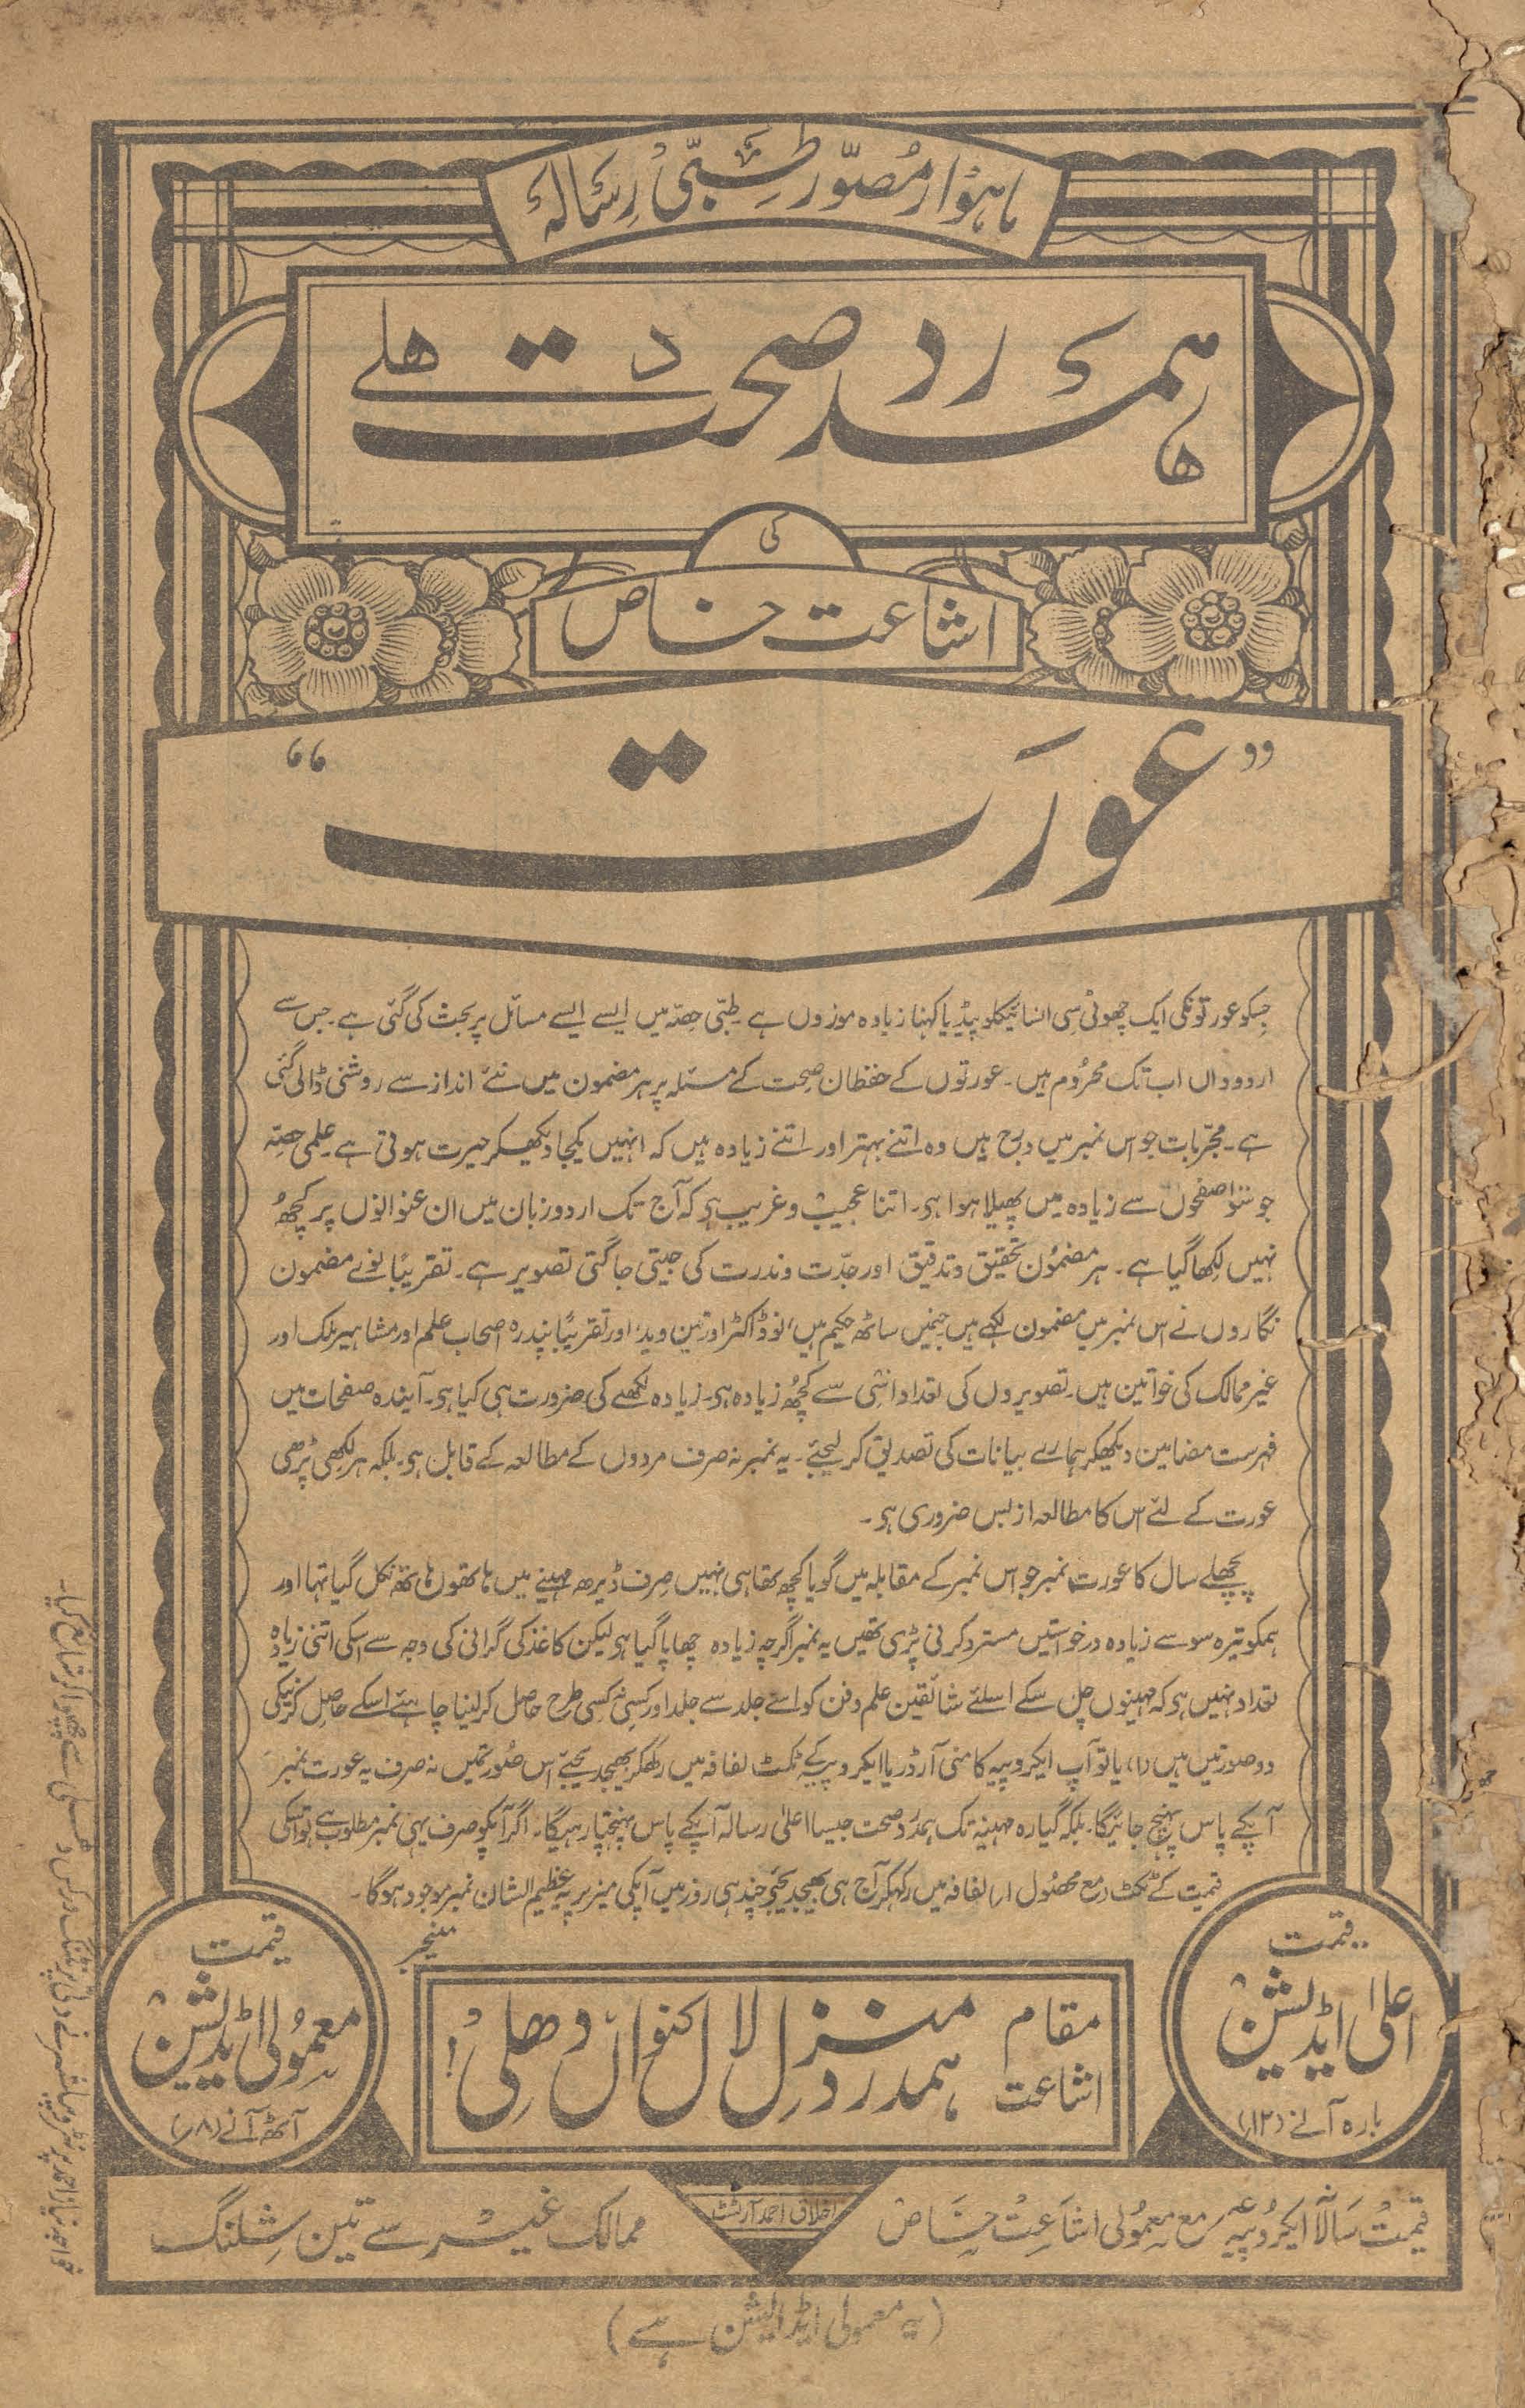 ماہوار مصوّر طبّی رسالہ
ہمدرد صحت دھلی
کی
اشاعت خاص
”عورت“
جسکو عورتونکی ایک چھوٹی سی انسائیکلوپیڈیا کہنا زیادہ موزوں ہے۔ طبّی حصّہ میں ایسے ایسے مسائل پر بحث کی گئی ہے۔ جس سے
اردوداں اب تک محروم ہیں۔ عورتوں کے حفظان صحت کے مسئلہ پر ہر مضمون میں نئے انداز سے روشنی ڈالی گئی
ہے۔ مجرّبات جو اس نمبر میں درج ہیں وہ اتنے بہتر اور اتنے زیادہ ہیں کہ انہیں یکجا دیکھکر حیرت ہوتی ہے۔ علمی حصّہ
جو سَو صفحوں سے زیادہ میں پھیلا ہوا ہی۔ اتنا عجیب و غریب ہی کہ آج تک اردو زبان میں ان عنوانوں پر کچھ
نہیں لکھا گیا ہے۔ ہر مضمون تحقیق و تدقیق اور جدّت و ندرت کی جیتی جاگتی تصویر ہے۔ تقریبًا نوّے مضمون
نگاروں نے اس نمبر میں مضمون لکھے ہیں جنمیں ساٹھ حکیم ہیں، نو ڈاکٹر اور تین وید، اور تقریبًا پندرہ اصحاب علم اور مشاہیر ملک اور
غیر ممالک کی خواتین ہیں۔ تصویروں کی تعداد اسّی سے کچھ زیادہ ہی۔ زیادہ لکھنے کی ضرورت ہی کیا ہی۔ آیندہ صفحات میں
فہرست مضامین دیکھکر ہمارے بیانات کی تصدیق کر لیجئے۔ یہ نمبر نہ صرف مردوں کے مطالعہ کے قابل ہی۔ بلکہ ہر لکھی پڑھی
عورت کے لئے اس کا مطالعہ از بس ضروری ہی۔
پچھلے سال کا عورت نمبر جو اس نمبر کے مقابلہ میں گویا کچھ تھا ہی نہیں صرف ڈیڑھ مہینے میں ہاتھوں ہاتھ نکل گیا تھا اور
ہمکو تیرہ سو سے زیادہ درخواستیں مسترد کرنی پڑی تھیں یہ نمبر اگرچہ زیادہ چھاپا گیا ہی لیکن کاغذ کی گرانی کی وجہ سے اسکی اتنی زیادہ
تعداد نہیں ہی کہ مہینوں چل سکے اسلئے شائقین علم و فن کو اسے جلد سے جلد اور کسی نہ کسی طرح حاصل کرلینا چاہئے اسکے حاصل کرنیکی
دو صورتیں ہیں (۱) یا تو آپ ایکروپیہ کا منی آرڈر یا ایکروپیہ کے ٹکٹ لفافہ میں رکھکر بھیجدیجئے اس صورتمیں نہ صرف یہ عورت نمبر
آپکے پاس پہنچ جائیگا۔ بلکہ گیارہ مہینہ تک ہمدرد صحت جیسا اعلیٰ رسالہ آپکے پاس پہنچتا رہیگا۔ اگر آپکو صرف یہی نمبر مطلوب ہے تو اسکی
قیمت کے ٹکٹ مع محصول لفافہ میں رکھکر آج ہی بھیجدیجئے چند ہی روز میں آپکی میز پر یہ عظیم الشان نمبر موجود ہوگا۔
منیجر
قیمت
اعلیٰ ایڈیشن
بارہ آنے (۱۲؍)
مقام اشاعت
ہمدرد منزل لال کنواں دھلی!
قیمت
معمولی ایڈیشن
آٹھ آنے (۸؍)
قیمت سالانہ ایکروپیہ مع معمولی اشاعت خاص
اخلاق احمد آرٹسٹ
ممالک غیر سے تین شلنگ
(یہ معمولی ایڈیشن ہے)